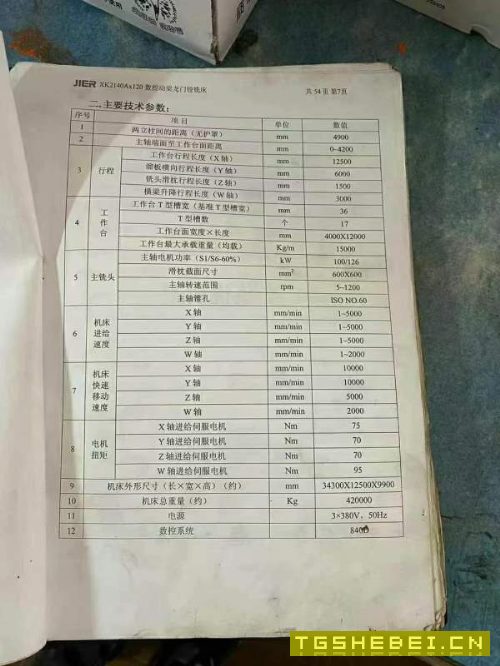 JIER XK2140Ax120 数控动梁龙门镗铣床 共 54 页 第7页
二、主要技术参数:
序号 项目 单位 数值
1 两立柱间的距离(无护罩) mm 4900
2 主轴端面至工作台面距离 mm 0~4200
3 行程 工作台行程长度(X轴) mm 12500
溜板横向行程长度(Y轴) mm 6000
铣头滑枕行程长度(Z轴) mm 1500
横梁升降行程长度(W轴) mm 3000
4 工作台 工作台T型槽宽(基准T型槽宽) mm 36
T型槽数 个 17
工作台面宽度×长度 mm 4000X12000
工作台最大承载重量(均载) Kg/m 15000
5 主铣头 主轴电机功率(S1/S6-60%) kW 100/126
滑枕截面尺寸 mm² 600X600
主轴转速范围 rpm 5~1200
主轴锥孔 ISO NO.60
6 机床进给速度 X轴 mm/min 1~5000
Y轴 mm/min 1~5000
Z轴 mm/min 1~5000
W轴 mm/min 1~2000
7 机床快速移动速度 X轴 mm/min 10000
Y轴 mm/min 10000
Z轴 mm/min 5000
W轴 mm/min 2000
8 电机扭矩 X轴进给伺服电机 Nm 75
Y轴进给伺服电机 Nm 70
Z轴进给伺服电机 Nm 70
W轴进给伺服电机 Nm 95
9 机床外形尺寸(长×宽×高)(约) mm 34300X12500X9900
10 机床总重量(约) Kg 420000
11 电源 3×380V，50Hz
12 数控系统 840D
TGSHEBEI.CN